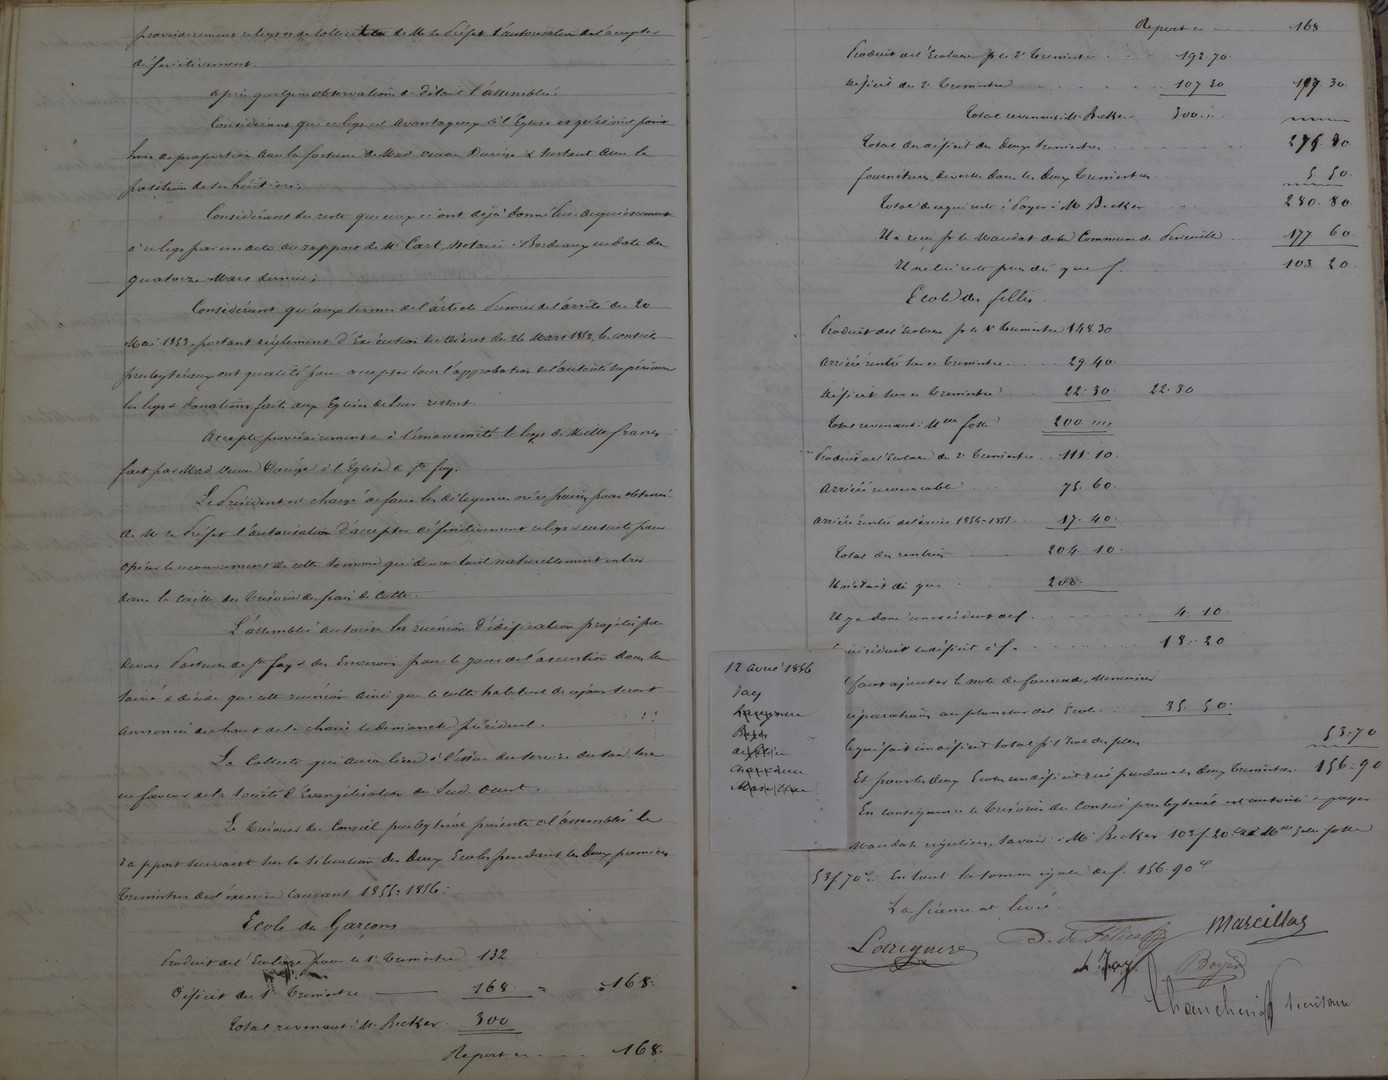 provisoirement ce legs et de solliciter de Mr le Préfet l'autorisation de l'accepter
définitivement.
après quelques observations de détail l'assemblée:
Considérant que ce legs est avantageux à l'Eglise et qu'il n'est point
hors de proportion avec la fortune de Mad. veuve & surtout avec la
position de ses héritiers:
Considérant du reste que ceux-ci ont déjà donné leur acquiescement
à ce legs par un acte au rapport de Mr Cart, Notaire à Bordeaux en date du
quatorze Mars dernier;
Considérant qu'aux termes de l'article premier de l'arrêté du 20
Mai 1853, portant règlement d'Exécution du Décret du 26 Mars 1852, les conseils
presbytéraux ont qualité pour accepter sous l'approbation de l'autorité supérieure
les legs & donations faits aux Eglises de leur ressort.
Accepte provisoirement & à l'unanimité le legs de Mille francs
fait par Mad. veuve à l'Eglise de Ste foy.
Le Président est chargé de faire les diligences nécessaires pour obtenir
de Mr le Préfet l'autorisation d'accepter définitivement ce legs & ensuite pour
opérer le recouvrement de cette somme qui devra tout naturellement entrer
dans la caisse du Trésorier des frais de Culte.
L'assemblée autorise la réunion d'édification projetée par
divers Pasteurs de Ste foy & des Environs pour le jour de l'ascension dans la
soirée & décide que cette réunion ainsi que le culte habituel de ce jour seront
annoncés du haut de la chaire le dimanche précédent.
La Collecte qui aura lieu à l'issue du service du soir, sera
en faveur de la Société d'Evangélisation du Sud-Ouest.
Le Trésorier du Conseil presbytéral présente à l'assemblée le
rapport suivant sur la situation des Deux Ecoles pendant les deux premiers
trimestres de l'exercice courant 1855=1856:
Ecole de Garçons
Produit de l'Ecolage pour le 1er Trimestre 132
Déficit du 1er Trimestre 168 = 168.
Total revenant à Mr Becker. 300
Report ci 168.
Report ci 168
Produit de l'Ecolage pr le 2e Trimestre 192.70
Déficit du 2e Trimestre 107 30 107.30
Total revenant Mr Becker 300
Total du déficit des deux trimestres 275 30
fournitures diverses dans les deux Trimestres 5 50
Total de ce qui reste à payer à Mr Becker 280.80
Il a reçu pr le Mandat de la Commune de 177 60
Il ne lui reste plus dû que f. 103 20
Ecole des filles
Produit de l'Ecolage pr le 1er Trimestre 148 30
Arriéré rentré sur ce Trimestre 29.40
Déficit sur ce Trimestre 22.30 22.30
Total revenant à Melle folle 200
Produit de l'Ecolage du 2e Trimestre 111.10
Arriéré recouvrable 75.60
Arriéré rentré de l'exercice 1854=1855 17.40
Total des rentrées 204 10
Il n'était dû que 200
Il y a donc un excédent de f. 4.10
réduit le déficit à f. 18.20
faut ajouter la note de
réparations au plancher de l'Ecole 35 50
ce qui fait un déficit total pr l'Ecole des filles 53.70
Et pour les deux Ecoles un déficit réel pendant les deux Trimestres 156=90
En conséquence le Trésorier du Conseil presbytéral est autorisé à payer
Mandats réguliers, savoir à Mr Becker 103f.20c & à Melle folle
53f70c. En tout la somme égale de f. 156.90c
La séance est levée.
12 avril 1856
Jay
Larégnère
Boyer
de Félice
Chancherie
Marcillac
Larégnère D. de Félice Marcillac
L. Jay Boyer
secrétaire